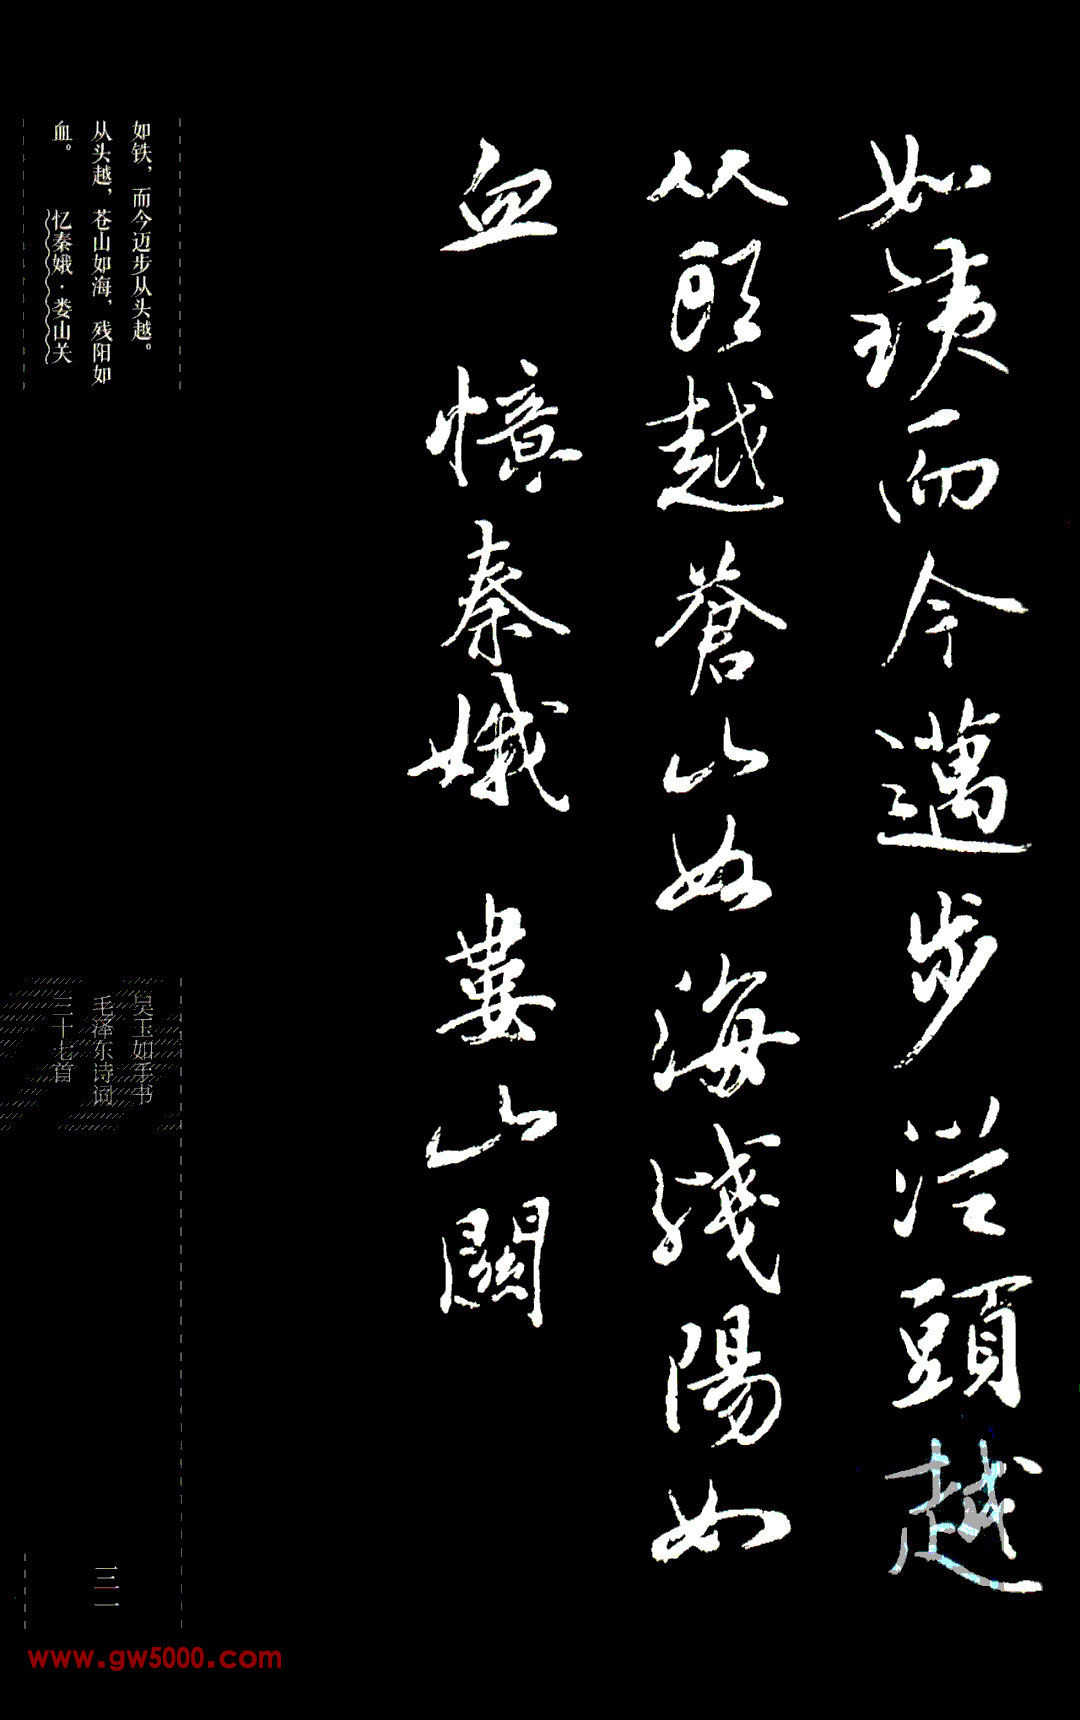 如鐵而今邁步從頭越
从頭越蒼山如海殘陽如
血 憶秦娥 婁山關
如铁，而今迈步从头越。
从头越，苍山如海，残阳如
血。 忆秦娥·娄山关
吴玉如手书
毛泽东诗词
三十七首
www.gw5000.com